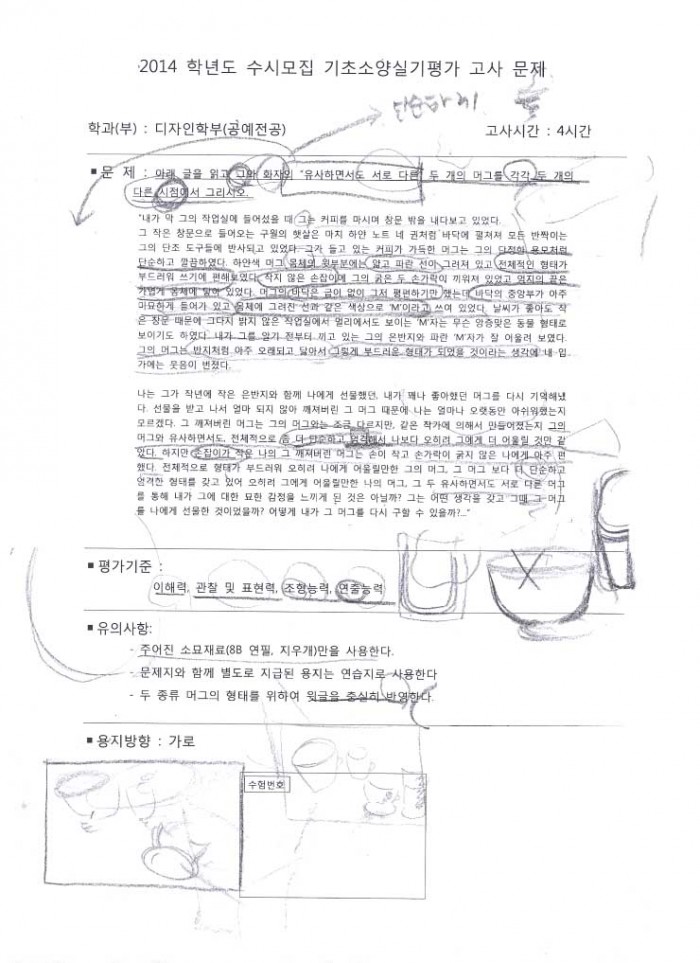 2014 학년도 수시모집 기초소양실기평가 고사 문제
단순하게
학과(부) : 디자인학부(공예전공)
고사시간 : 4시간
■ 문 제 : 아래 글을 읽고 그와 화자의 "유사하면서도 서로 다른" 두 개의 머그를 각각 두 개의
다른 시점에서 그리시오.
"내가 막 그의 작업실에 들어섰을 때 그는 커피를 마시며 창문 밖을 내다보고 있었다.
그 작은 창문으로 들어오는 구월의 햇살은 마치 하얀 노트 네 권처럼 바닥에 펼쳐져 모든 반짝이는
그의 단조 도구들에 반사되고 있었다. 그가 들고 있는 커피가 가득한 머그는 그의 단정한 용모처럼
단순하고 깔끔하였다. 하얀색 머그 몸체의 윗부분에는 얇고 파란 선이 그려져 있고 전체적인 형태가
부드러워 쓰기에 편해보였다. 작지 않은 손잡이에 그의 굵은 두 손가락이 끼워져 있었고 엄지의 끝은
가볍게 몸체에 닿아 있었다. 머그의 바닥은 굽이 없이 그저 평편하기만 했는데 바닥의 중앙부가 아주
미묘하게 들어가 있고 몸체에 그려진 선과 같은 색상으로 'M'이라고 쓰여 있었다. 날씨가 좋아도 작
은 창문 때문에 그다지 밝지 않은 작업실에서 멀리에서도 보이는 'M'자는 무슨 앙증맞은 동물 형태로
보이기도 하였다. 내가 그를 알기 전부터 끼고 있는 그의 은반지와 파란 'M'자가 잘 어울려 보였다.
그의 머그는 반지처럼 아주 오래되고 닳아서 그렇게 부드러운 형태가 되었을 것이라는 생각에 내 입
가에는 웃음이 번졌다.
나는 그가 작년에 작은 은반지와 함께 나에게 선물했던, 내가 꽤나 좋아했던 머그를 다시 기억해냈
다. 선물을 받고 나서 얼마 되지 않아 깨져버린 그 머그 때문에 나는 얼마나 오랫동안 아쉬워했는지
모르겠다. 그 깨져버린 머그는 그의 머그와는 조금 다르지만, 같은 작가에 의해서 만들어졌는지 그의
머그와 유사하면서도, 전체적으로 좀 더 단순하고 엄격해서 나보다 오히려 그에게 더 어울릴 것만 같
았다. 하지만 손잡이가 작은 나의 그 깨져버린 머그는 손이 작고 손가락이 굵지 않은 나에게 아주 편
했다. 전체적으로 형태가 부드러워 오히려 나에게 어울릴만한 그의 머그, 그 머그 보다 더 단순하고
엄격한 형태를 갖고 있어 오히려 그에게 어울릴만한 나의 머그, 그 두 유사하면서도 서로 다른 머그
를 통해 내가 그에 대한 묘한 감정을 느끼게 된 것은 아닐까? 그는 어떤 생각을 갖고 그때 그 머그
를 나에게 선물한 것이었을까? 어떻게 내가 그 머그를 다시 구할 수 있을까?..."
■ 평가기준 :
이해력, 관찰 및 표현력, 조형능력, 연출능력
■ 유의사항:
- 주어진 소묘재료(8B 연필, 지우개)만을 사용한다.
- 문제지와 함께 별도로 지급된 용지는 연습지로 사용한다
- 두 종류 머그의 형태를 위하여 윗글을 충실히 반영한다.
■ 용지방향 : 가로
수험번호